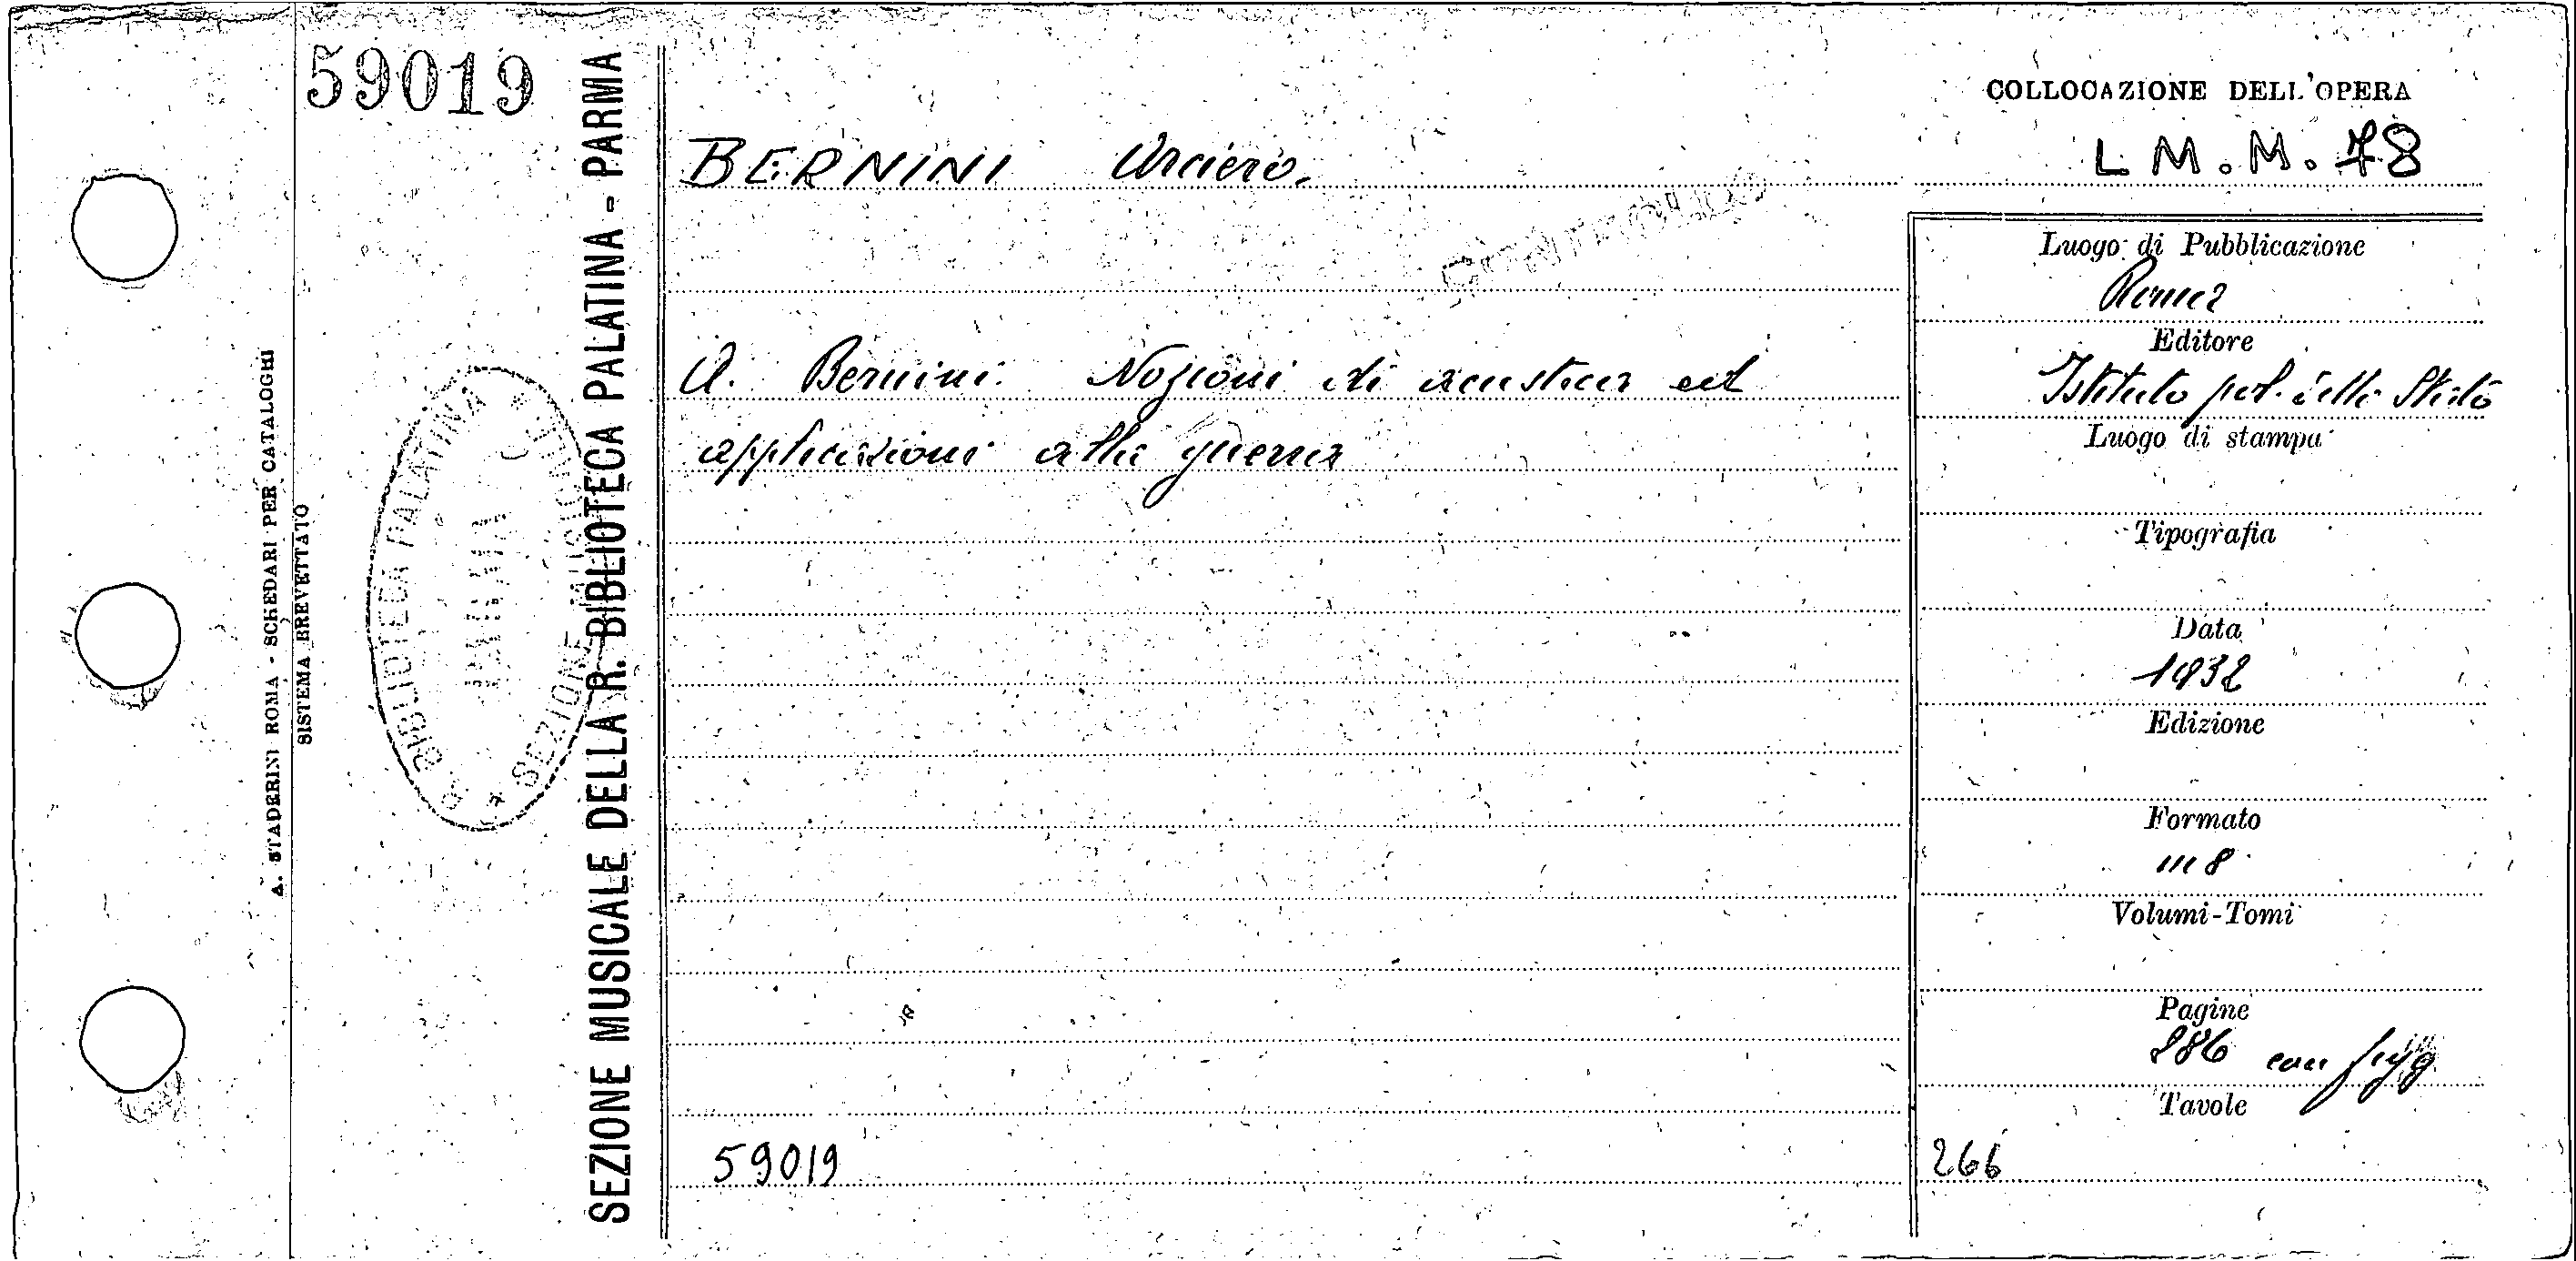 59019
A. STADERINI ROMA - SCHEDARI PER CATALOGHI
SISTEMA BREVETTATO
BIBLIOTECA PALATINA * SEZIONE MUSICALE
PARMA
SEZIONE MUSICALE DELLA R. BIBLIOTECA PALATINA - PARMA
BERNINI Arciero.
CONTROLLATO
A. Bernini. Nozioni di acustica ed
applicazioni alla guerra
59019
COLLOCAZIONE DELL'OPERA
L M. M. 78
Luogo di Pubblicazione
Roma
Editore
Istituto pol. dello Stato
Luogo di stampa
Tipografia
Data
1932
Edizione
Formato
in 8
Volumi-Tomi
Pagine
286 con figg.
Tavole
266